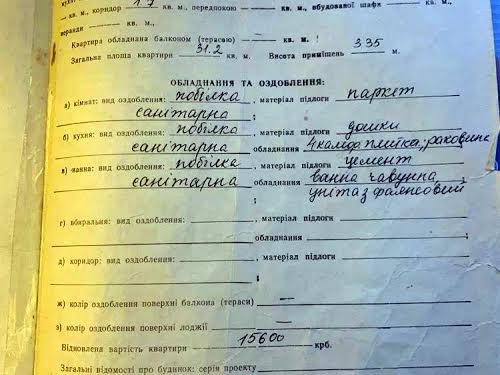 кв. м., коридор 1.7 кв. м., передпокою — кв. м., вбудованої шафи
веранди — кв. м.,
Квартира обладнана балконом (терасою) — кв. м.
Загальна площа квартири 31.2 кв. м. Висота приміщень 335 м.
ОБЛАДНАННЯ ТА ОЗДОБЛЕННЯ:
а) кімнат: вид оздоблення: побілка, матеріал підлоги паркет
санітарна;
б) кухня: вид оздоблення: побілка, матеріал підлоги дошки
санітарна обладнання 4 камфо плитка; раковина
в) ванна: вид оздоблення: побілка, матеріал підлоги цемент
санітарна обладнання ванна чавунна
унітаз фаянсовий
г) вбиральня: вид оздоблення:, матеріал підлоги
обладнання ;
д) коридор: вид оздоблення:, матеріал підлоги
;
ж) колір оздоблення поверхні балкона (тераси) —
з) колір оздоблення поверхні лоджії —
Відновлена вартість квартири 15600 крб.
Загальні відомості про будинок: серія проекту